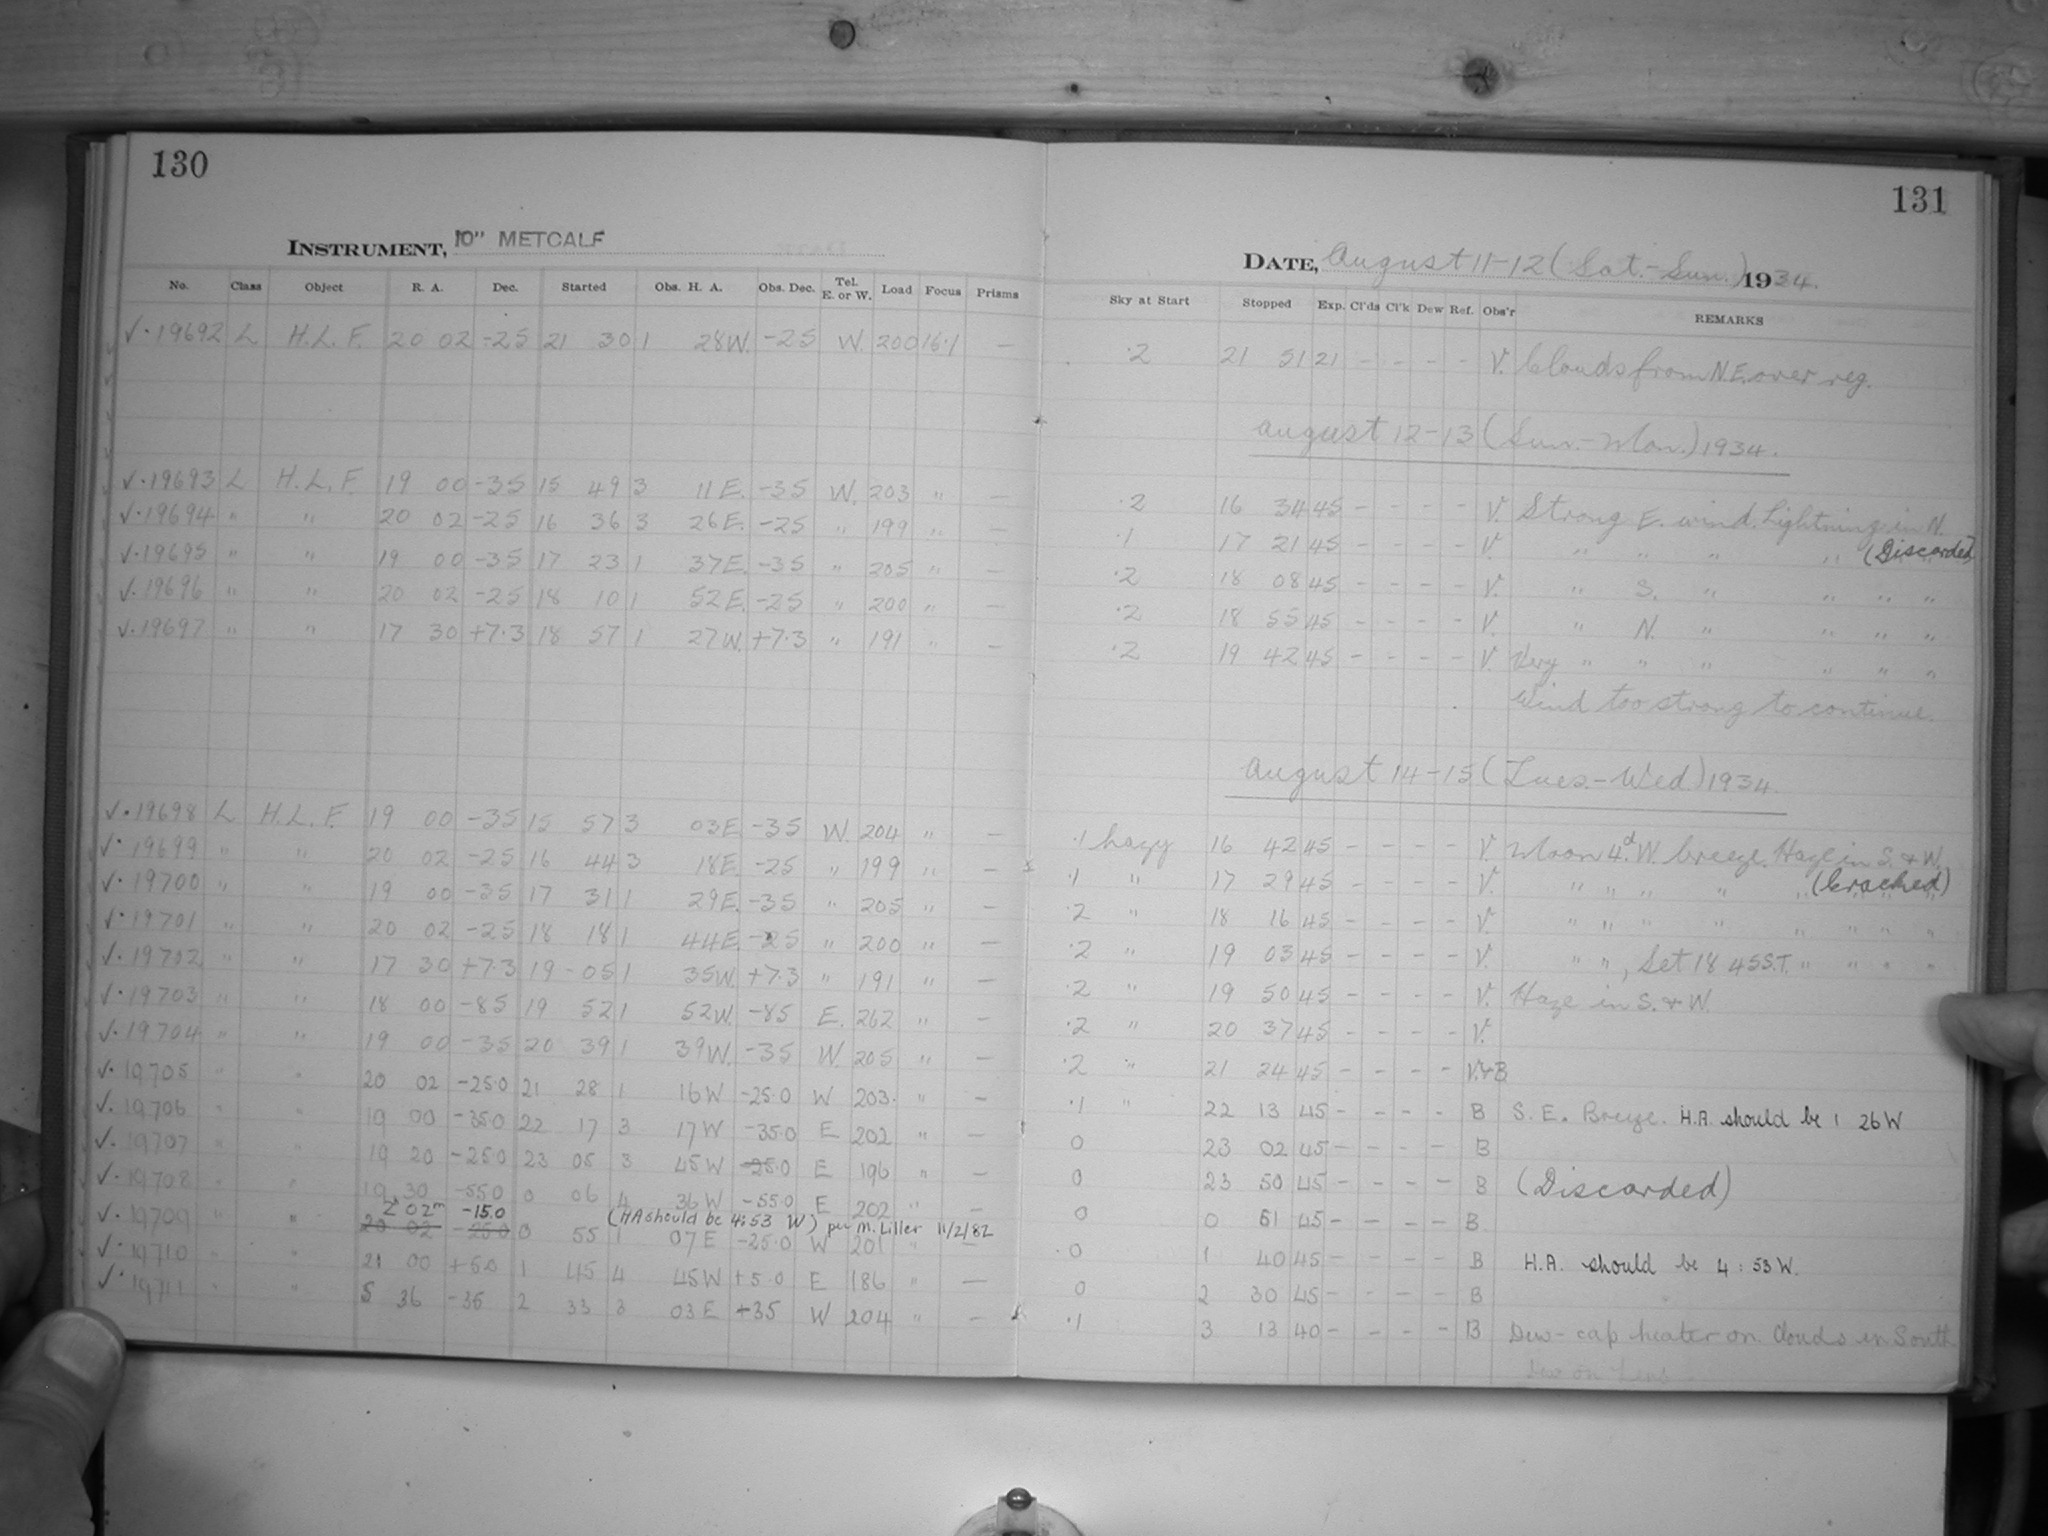 130
INSTRUMENT, 10" METCALF
No. Class Object R. A. Dec. Started Obs. H. A. Obs. Dec. Tel. E. or W. Load Focus Prisms
✓·19692 L H.L.F. 20 02 -25 21 30 1 28W. -25 W. 200 16·1 —
✓·19693 L H.L.F. 19 00 -35 15 49 3 11E. -35 W. 203 " —
✓·19694 " " 20 02 -25 16 36 3 26E. -25 " 199 " —
✓·19695 " " 19 00 -35 17 23 1 37E. -35 " 205 " —
✓·19696 " " 20 02 -25 18 10 1 52E. -25 " 200 " —
✓·19697 " " 17 30 +7·3 18 57 1 27W. +7·3 " 191 " —
✓·19698 L H.L.F. 19 00 -35 15 57 3 03E -35 W. 204 " —
✓·19699 " " 20 02 -25 16 44 3 18E. -25 " 199 " —
✓·19700 " " 19 00 -35 17 31 1 29E. -35 " 205 " —
✓·19701 " " 20 02 -25 18 18 1 44E. -25 " 200 " —
✓·19702 " " 17 30 +7·3 19 05 1 35W. +7·3 " 191 " —
✓·19703 " " 18 00 -85 19 52 1 52W. -85 E. 262 " —
✓·19704 " " 19 00 -35 20 39 1 39W. -35 W. 205 " —
✓·19705 " " 20 02 -25·0 21 28 1 16W -25·0 W 203 " —
✓·19706 " " 19 00 -35·0 22 17 3 17W -35·0 E 202 " —
✓·19707 " " 19 20 -25·0 23 05 3 45W -25·0 E 196 " —
✓·19708 " " 19 30 -55·0 0 06 4 36W -55·0 E 202 " —
2h 02m -15.0 (HA should be 4:53 W) per M. Liller 11/2/82
✓·19709 " " 20 02 -25·0 0 55 1 07E -25·0 W 201 " —
✓·19710 " " 21 00 +5·0 1 45 4 45W +5·0 E 186 " —
✓·19711 " " 5 36 -35 2 33 3 03E +35 W 204 " —
131
DATE, August 11-12 (Sat.-Sun.) 1934.
Sky at Start Stopped Exp. Cl'ds Cl'k Dew Ref. Obs'r REMARKS
·2 21 51 21 - - - - V. Clouds from N.E. over reg.
August 12-13 (Sun.-Mon.) 1934.
·2 16 34 45 - - - - V. Strong E. wind. Lightning in N.
·1 17 21 45 - - - - V. " " " " (Discarded)
·2 18 08 45 - - - - V. " S. " " " "
·2 18 55 45 - - - - V. " N. " " " "
·2 19 42 45 - - - - V. Very " " " " " "
Wind too strong to continue.
August 14-15 (Tues.-Wed) 1934.
·1 hazy 16 42 45 - - - - V. Moon 4d. W. breeze. Haze in S. & W.
·1 " 17 29 45 - - - - V. " " " " " (Cracked)
·2 " 18 16 45 - - - - V. " " " " " " " "
·2 " 19 03 45 - - - - V. " ", Set 18 45 S.T. " " " "
·2 " 19 50 45 - - - - V. Haze in S. & W.
·2 " 20 37 45 - - - - V.
·2 " 21 24 45 - - - - V.&B
·1 " 22 13 45 - - - - B S. E. Breeze. H.A. should be 1 26 W
0 23 02 45 - - - - B
0 23 50 45 - - - - B (Discarded)
0 0 51 45 - - - - B
·0 1 40 45 - - - - B H.A. should be 4:53 W.
0 2 30 45 - - - - B
·1 3 13 40 - - - - B Dew-cap heater on. Clouds in South
Dew on Lens